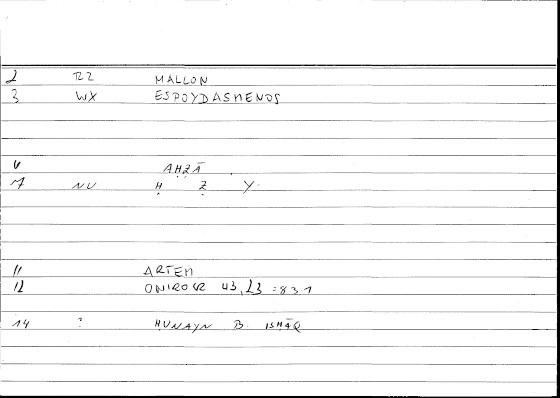 2 RZ MALLON
3 WX ESPOYDASMENOS
AḤẒĀ
7 NU Ḥ Ẓ Y
11 ARTEM
12 ONIROCR 43,23 = 83.1
14 ? ḤUNAYN B. ISḤĀQ